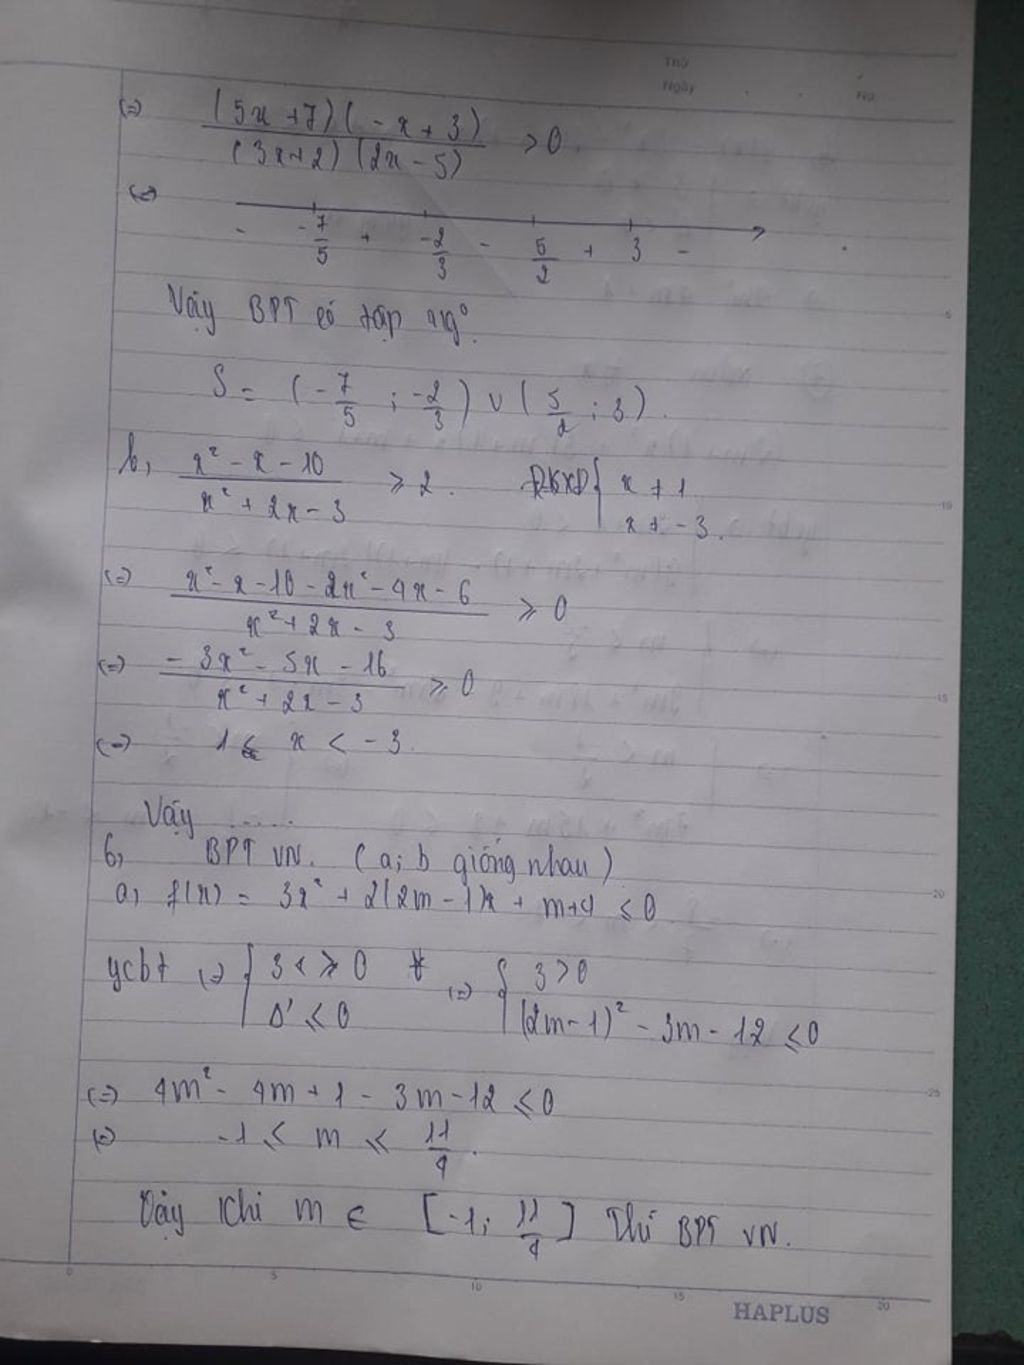 Thứ
Ngày No.
(=) (5x + 7)(-x + 3) / (3x+2)(2x - 5) > 0.
(=)
- -7/5 + -2/3 - 5/2 + 3 -
Vậy BPT có tập ng°.
S = (-7/5 ; -2/3) ∪ (5/2 ; 3).
b, x² - x - 10 / x² + 2x - 3 ≥ 2. ĐKXĐ { x ≠ 1
x ≠ -3.
(=) x² - x - 10 - 2x² - 4x - 6 / x² + 2x - 3 ≥ 0
(=) - 3x² - 5x - 16 / x² + 2x - 3 ≥ 0
(=) 1 < x < -3.
Vậy .....
6, BPT VN. (a; b giống nhau)
a, f(x) = 3x² + 2(2m - 1)x + m+4 ≤ 0
ycbt (=) { 3 < ≥ 0 (=) { 3 > 0
Δ' ≤ 0 (2m - 1)² - 3m - 12 ≤ 0
(=) 4m² - 4m + 1 - 3m - 12 ≤ 0
(=) -1 ≤ m ≤ 11/4.
Vậy khi m ∈ [-1; 11/4] Thì BPT VN.
0 5 10 15 20
HAPLUS